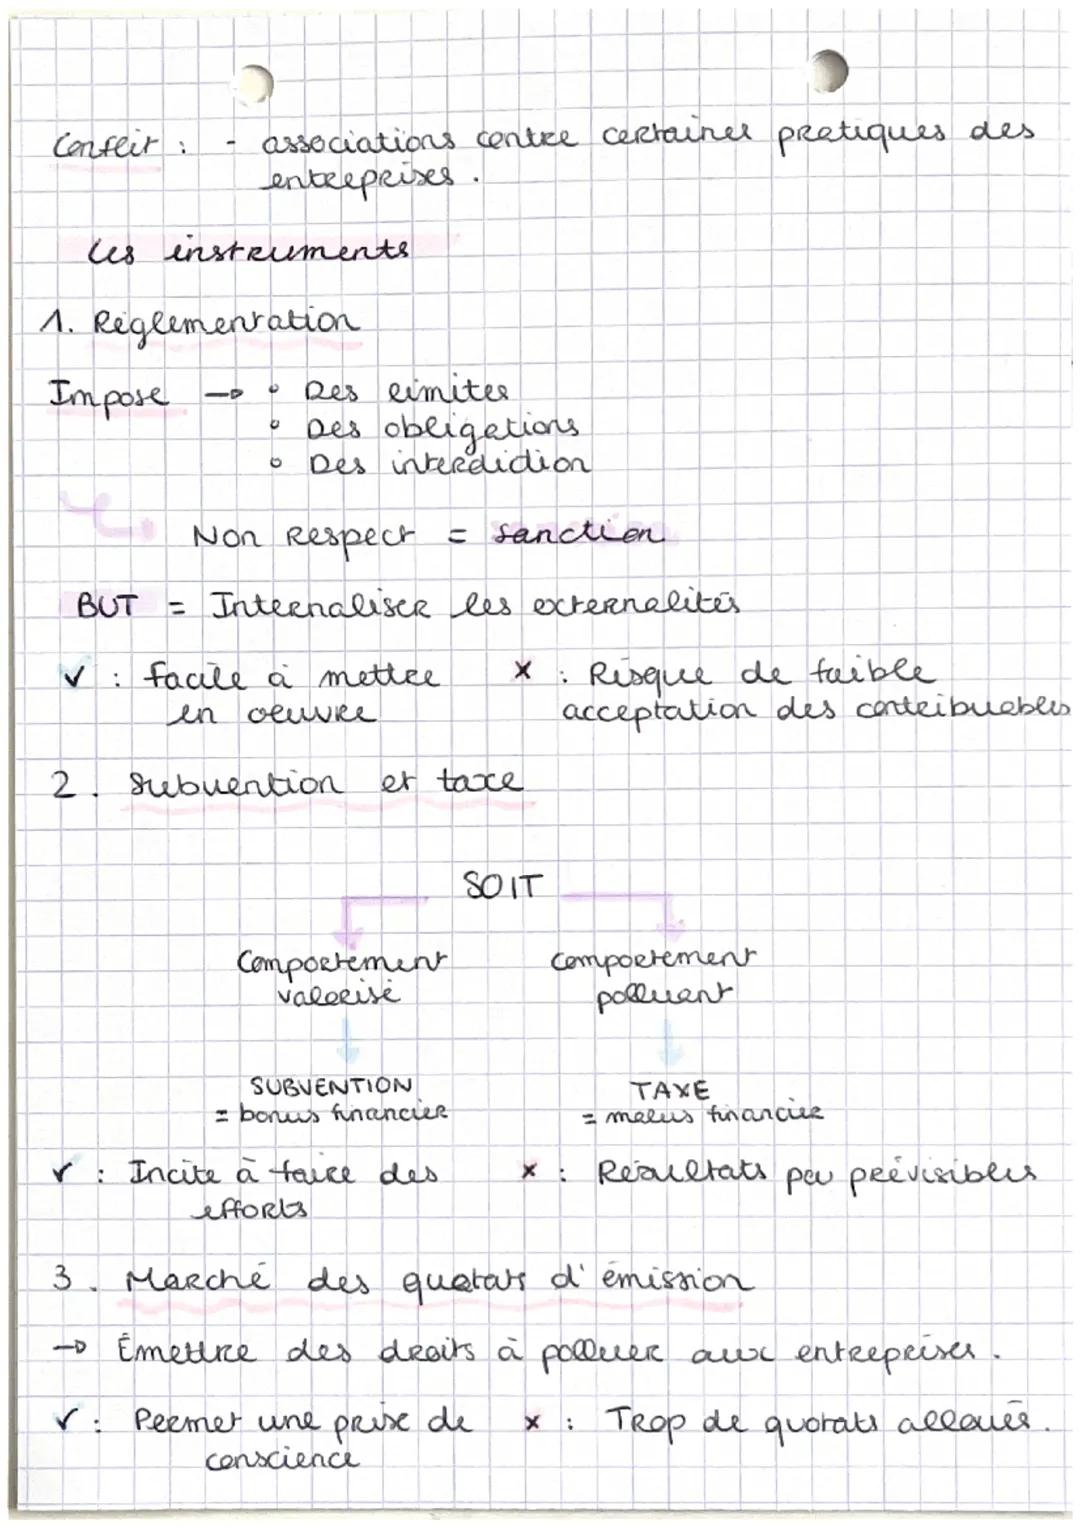 Conflit : - associations contre certaines pratiques des
entreprises.
Les instruments
1. Réglementation
Impose → • Des limites
• Des obligations
• Des interdiction
Non respect = sanction
BUT = Internaliser les externalités
✓ : facile à mettre
en oeuvre
x : Risque de faible
acceptation des contribuables
2. Subvention et taxe
SOIT
Comportement
valorisé
Comportement
polluant
SUBVENTION
= bonus financier
TAXE
= malus financier
✓ : Incite à faire des
efforts
x : Résultats peu prévisibles
3. Marché des quotats d'émission
→ Émettre des droits à polluer aux entreprises.
✓ : Permet une prise de
conscience
x : Trop de quotats alloués.